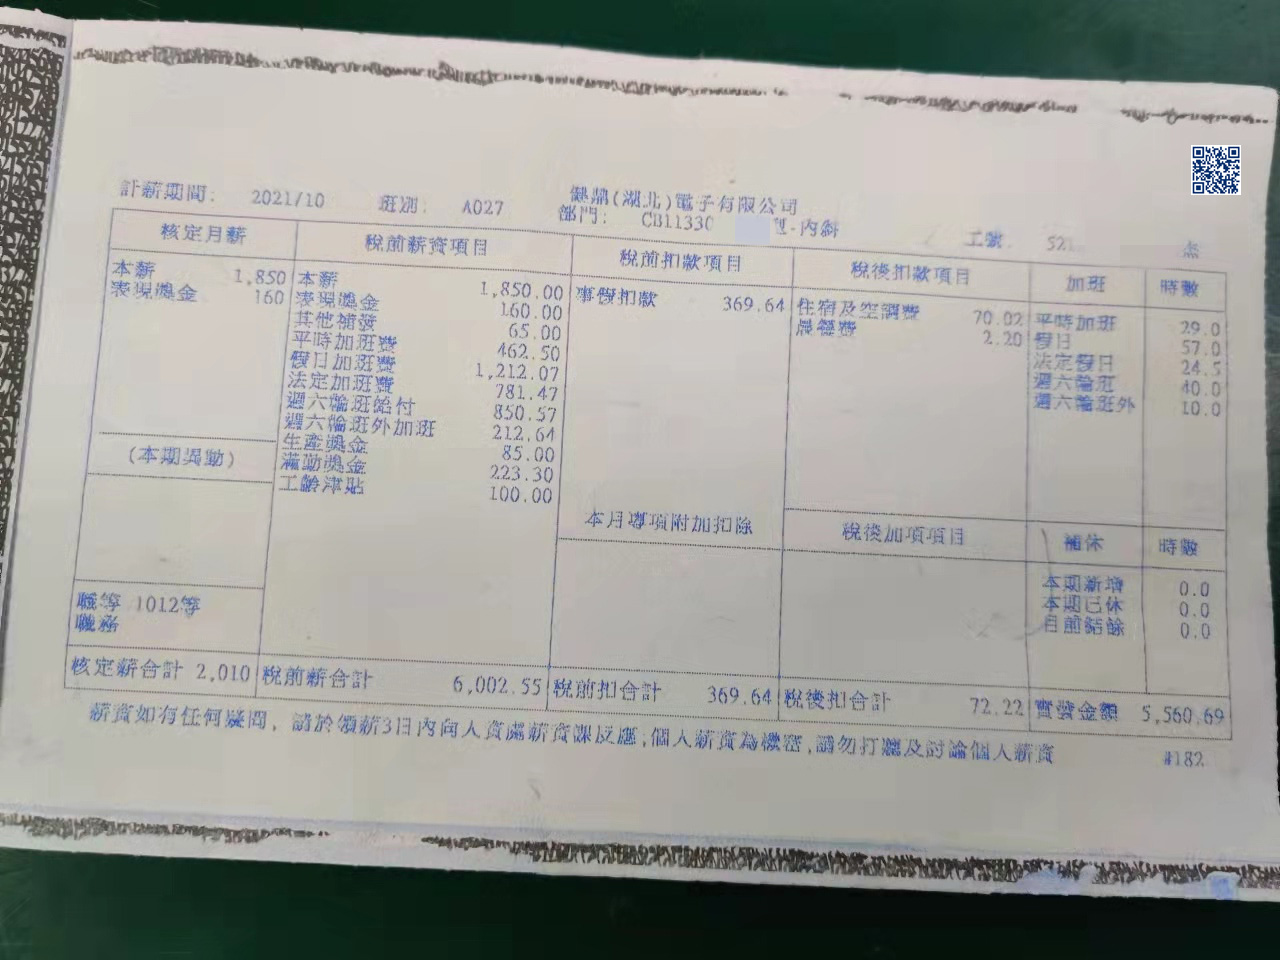 計薪期間: 2021/10 班別: A027 健鼎(湖北)電子有限公司
部門: CB11330 -內斜 工號 521 杰
核定月薪 稅前薪資項目 稅前扣款項目 稅後扣款項目 加班 時數
本薪 1,850 本薪 1,850.00 事假扣款 369.64 住宿及空調費 70.02 平時加班 29.0
表現獎金 160 表現獎金 160.00 晨餐費 2.20 假日 57.0
其他補發 65.00 法定假日 24.5
平時加班費 462.50 週六輪班 40.0
假日加班費 1,212.07 週六輪班外 10.0
法定加班費 781.47
週六輪班給付 850.57
週六輪班外加班 212.64
(本期異動) 生產獎金 85.00
滿勤獎金 223.30
工齡津貼 100.00
本月專項附加扣除 稅後加項項目 補休 時數
本期新增 0.0
職等 1012等 本期已休 0.0
職務 目前結餘 0.0
核定薪合計 2,010 稅前薪合計 6,002.55 稅前扣合計 369.64 稅後扣合計 72.22 實發金額 5,560.69
薪資如有任何疑問, 請於領薪3日內向人資處薪資課反應,個人薪資為機密,請勿打聽及討論個人薪資 #182